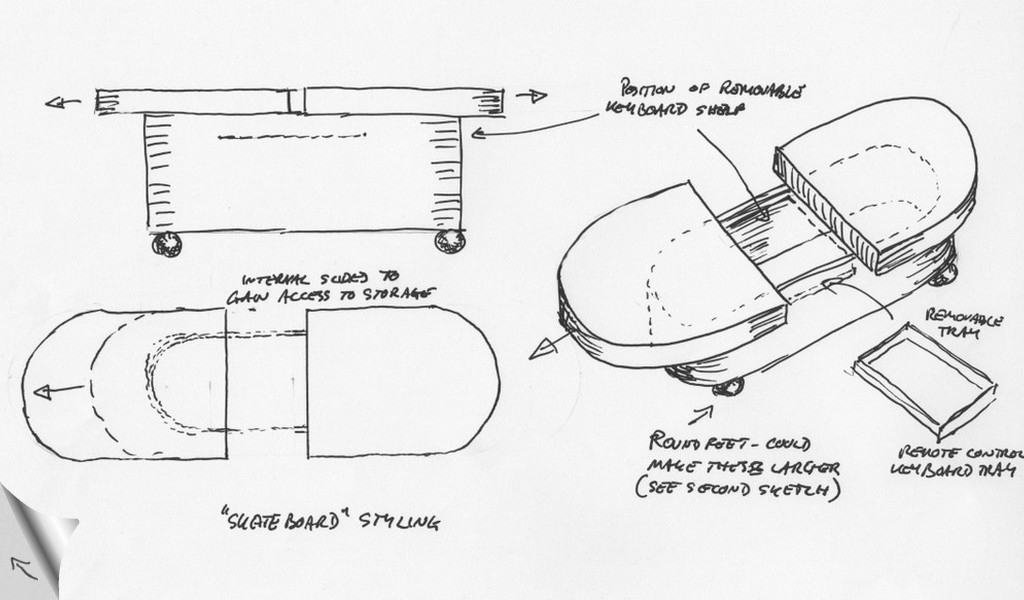 POSITION OF REMOVABLE
KEYBOARD SHELF
INTERNAL SLIDES TO
GAIN ACCESS TO STORAGE
REMOVABLE
TRAY
ROUND FEET - COULD
MAKE THESE LARGER
(SEE SECOND SKETCH)
REMOTE CONTROL
KEYBOARD TRAY
"SKATEBOARD" STYLING